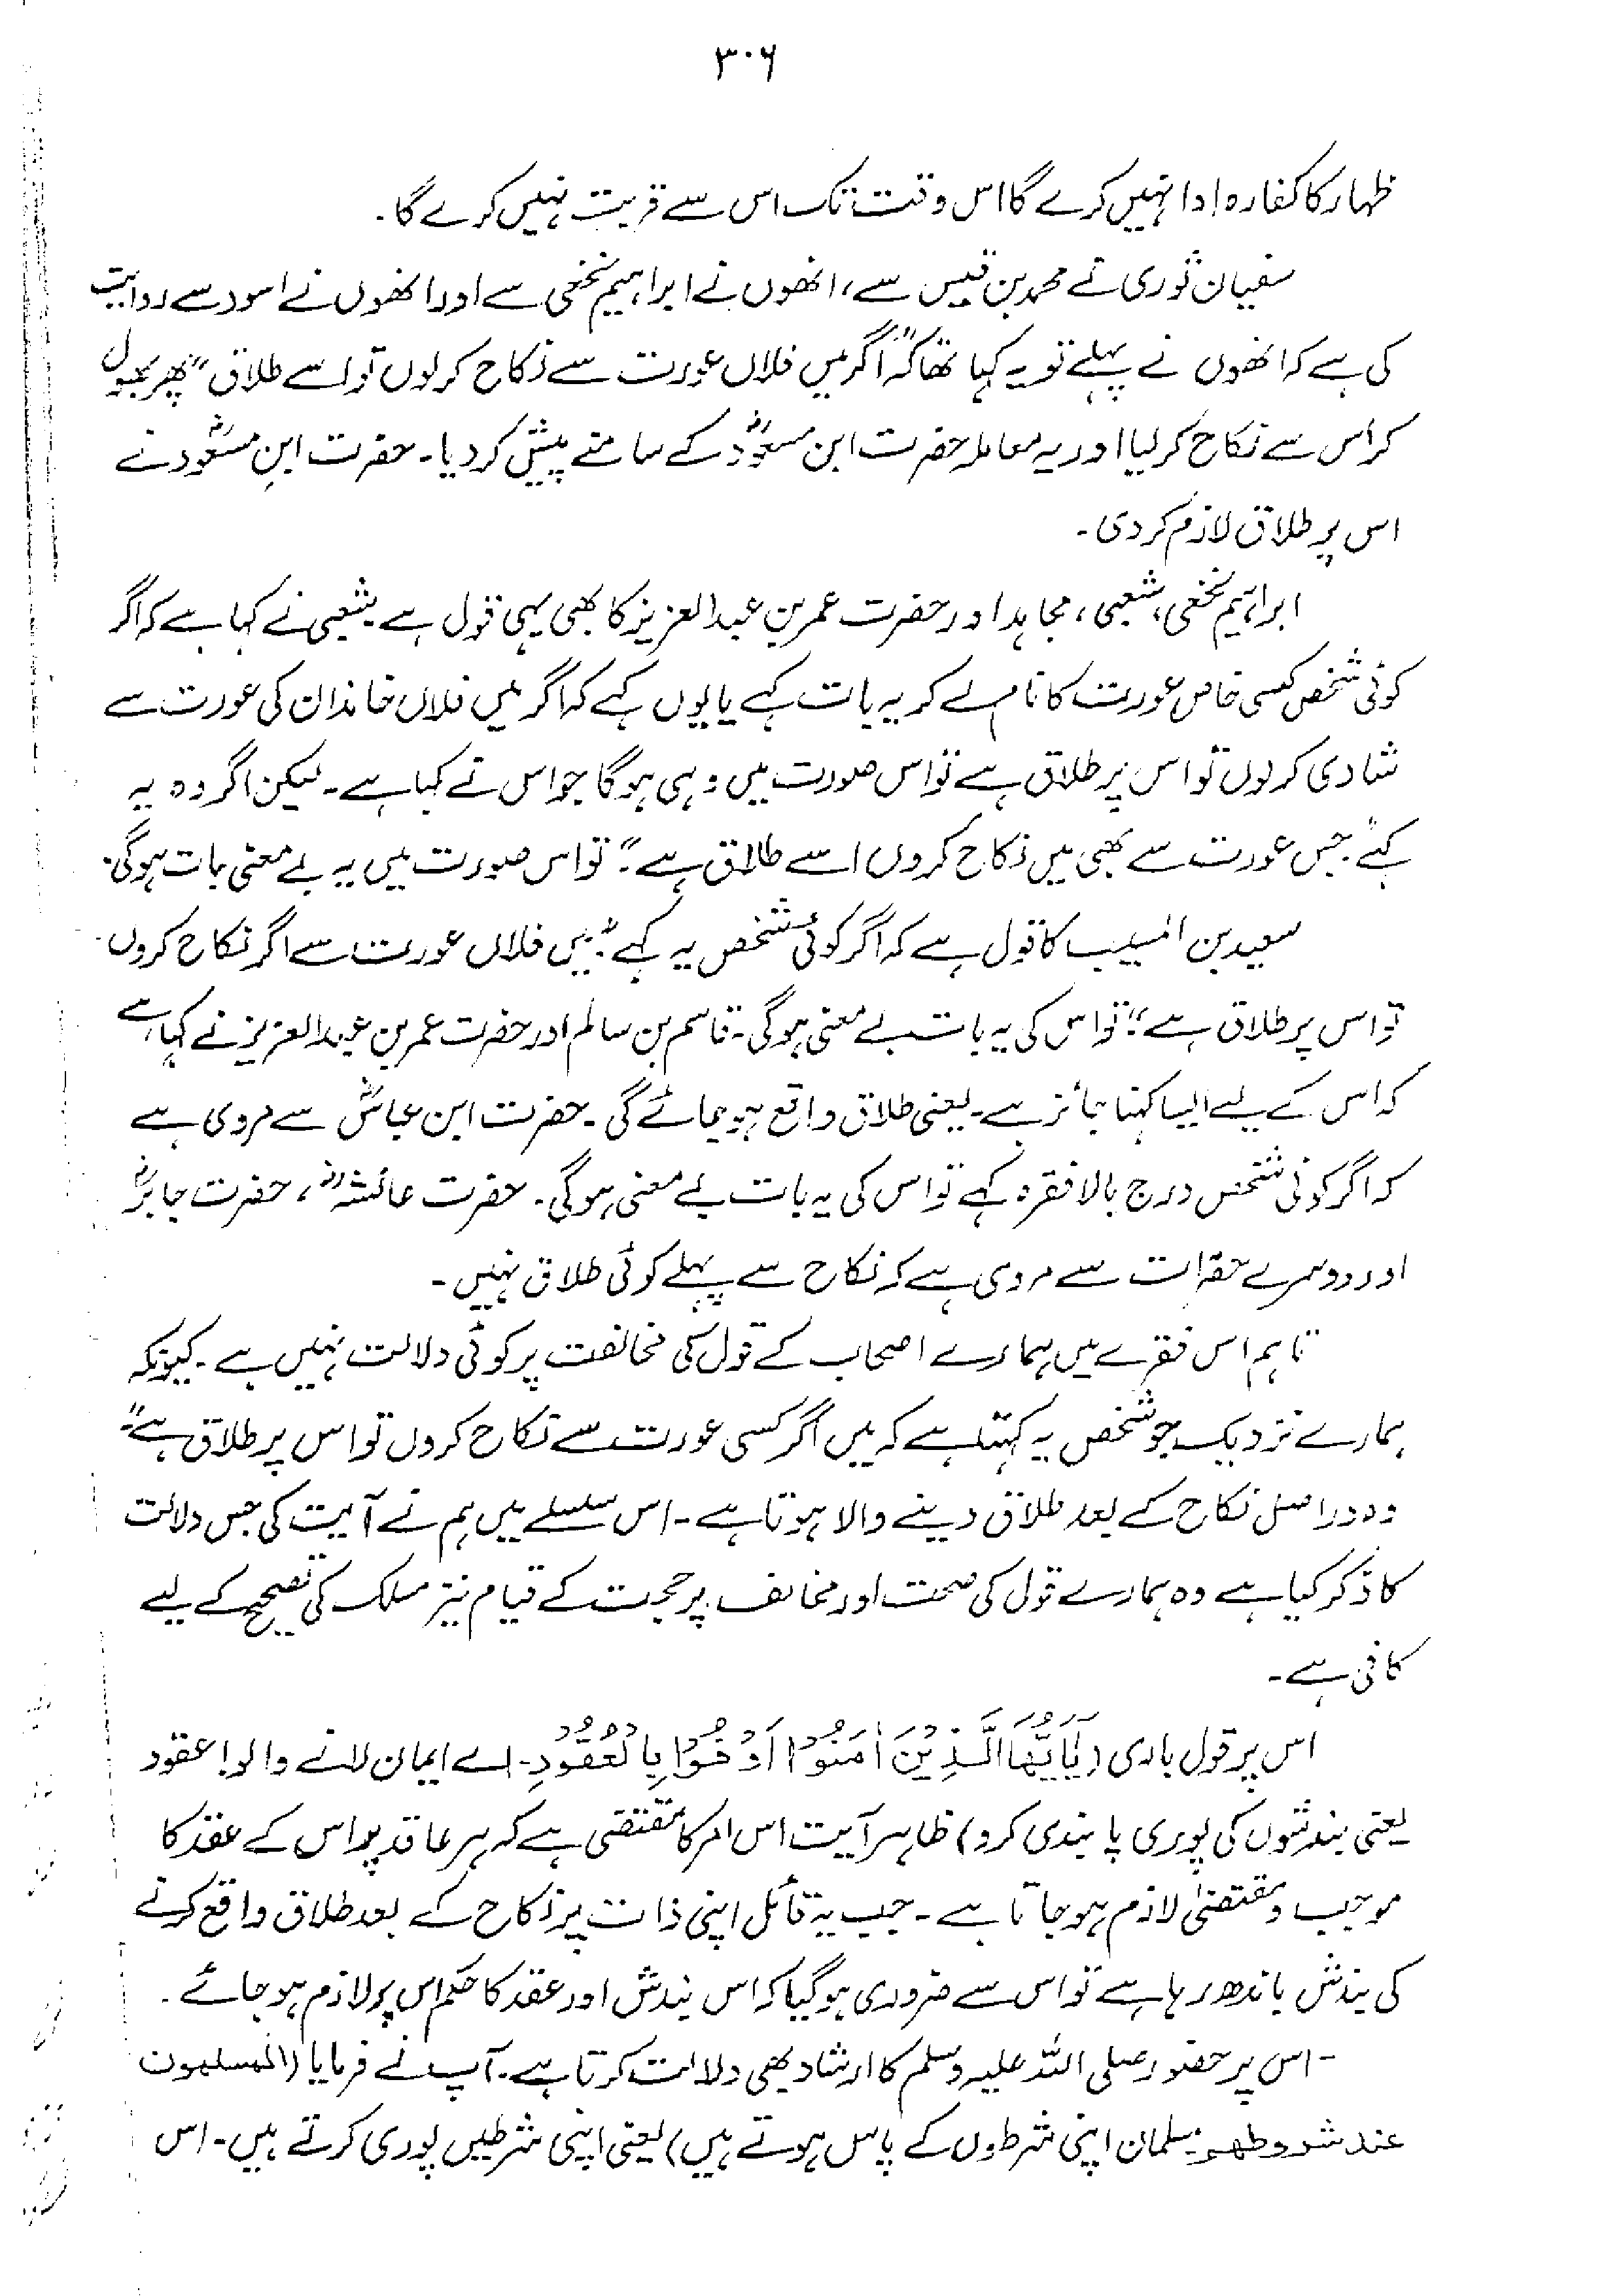 ۳۰۶
ظہار کا کفارہ ادا نہیں کرے گا اس وقت تک اس سے قربت نہیں کرے گا۔
سفیان ثوری نے محمد بن قیس سے، انھوں نے ابراہیم نخعی سے اور انھوں نے اسود سے روایت
کی ہے کہ انھوں نے پہلے تو یہ کہا تھا کہ "اگر میں فلاں عورت سے نکاح کر لوں تو اسے طلاق" پھر بھول
کر اس سے نکاح کر لیا اور یہ معاملہ حضرت ابن مسعودؓ کے سامنے پیش کر دیا۔ حضرت ابنِ مسعودؓ نے
اس پر طلاق لازم کر دی۔
ابراہیم نخعی، شعبی، مجاہد اور حضرت عمر بن عبدالعزیز کا بھی یہی قول ہے۔ شعبی نے کہا ہے کہ اگر
کوئی شخص کسی خاص عورت کا نام لے کر یہ بات کہے یا یوں کہے کہ اگر میں فلاں خاندان کی عورت سے
شادی کر لوں تو اس پر طلاق ہے تو اس صورت میں وہی ہوگا جو اس نے کہا ہے۔ لیکن اگر وہ یہ
کہے "جس عورت سے بھی میں نکاح کروں اسے طلاق ہے" تو اس صورت میں یہ بے معنی بات ہوگی۔
سعید بن المسیب کا قول ہے کہ اگر کوئی شخص یہ کہے "میں فلاں عورت سے اگر نکاح کروں
تو اس پر طلاق ہے" تو اس کی یہ بات بے معنی ہوگی۔ قاسم بن سالم اور حضرت عمر بن عبدالعزیز نے کہا ہے
کہ اس کے لیے ایسا کہنا جائز ہے۔ یعنی طلاق واقع ہو جائے گی۔ حضرت ابن عباسؓ سے مروی ہے
کہ اگر کوئی شخص درج بالا فقرہ کہے تو اس کی یہ بات بے معنی ہوگی۔ حضرت عائشہؓ، حضرت جابرؓ
اور دوسرے حضرات سے مروی ہے کہ نکاح سے پہلے کوئی طلاق نہیں۔
تاہم اس فقرے میں ہمارے اصحاب کے قول کی مخالفت پر کوئی دلالت نہیں ہے۔ کیونکہ
ہمارے نزدیک جو شخص یہ کہتا ہے کہ میں اگر کسی عورت سے نکاح کروں تو اس پر طلاق ہے"
وہ دراصل نکاح کے بعد طلاق دینے والا ہوتا ہے۔ اس سلسلے میں ہم نے آیت کی جس دلالت
کا ذکر کیا ہے وہ ہمارے قول کی صحت اور مخالف پر حجت کے قیام نیز مسلک کی تصحیح کے لیے
کافی ہے۔
اس پر قول باری (يٰٓاَيُّهَا الَّذِيْنَ اٰمَنُوْا اَوْفُوْا بِالْعُقُوْدِ۔ اے ایمان لانے والو! عقود
یعنی بندشوں کی پوری پابندی کرو) ظاہر آیت اس امر کا مقتضی ہے کہ ہر عاقد پر اس کے عقد کا
موجب و مقتضیٰ لازم ہو جاتا ہے۔ جب یہ قائل اپنی ذات پر نکاح کے بعد طلاق واقع کرنے
کی بندش باندھ رہا ہے تو اس سے ضروری ہو گیا کہ اس بندش اور عقد کا حکم اس پر لازم ہو جائے۔
- اس پر حضور صلی اللہ علیہ وسلم کا ارشاد بھی دلالت کرتا ہے۔ آپ نے فرمایا (المسلمون
عند شروطهم۔ مسلمان اپنی شرطوں کے پاس ہوتے ہیں) یعنی اپنی شرطیں پوری کرتے ہیں۔ اس